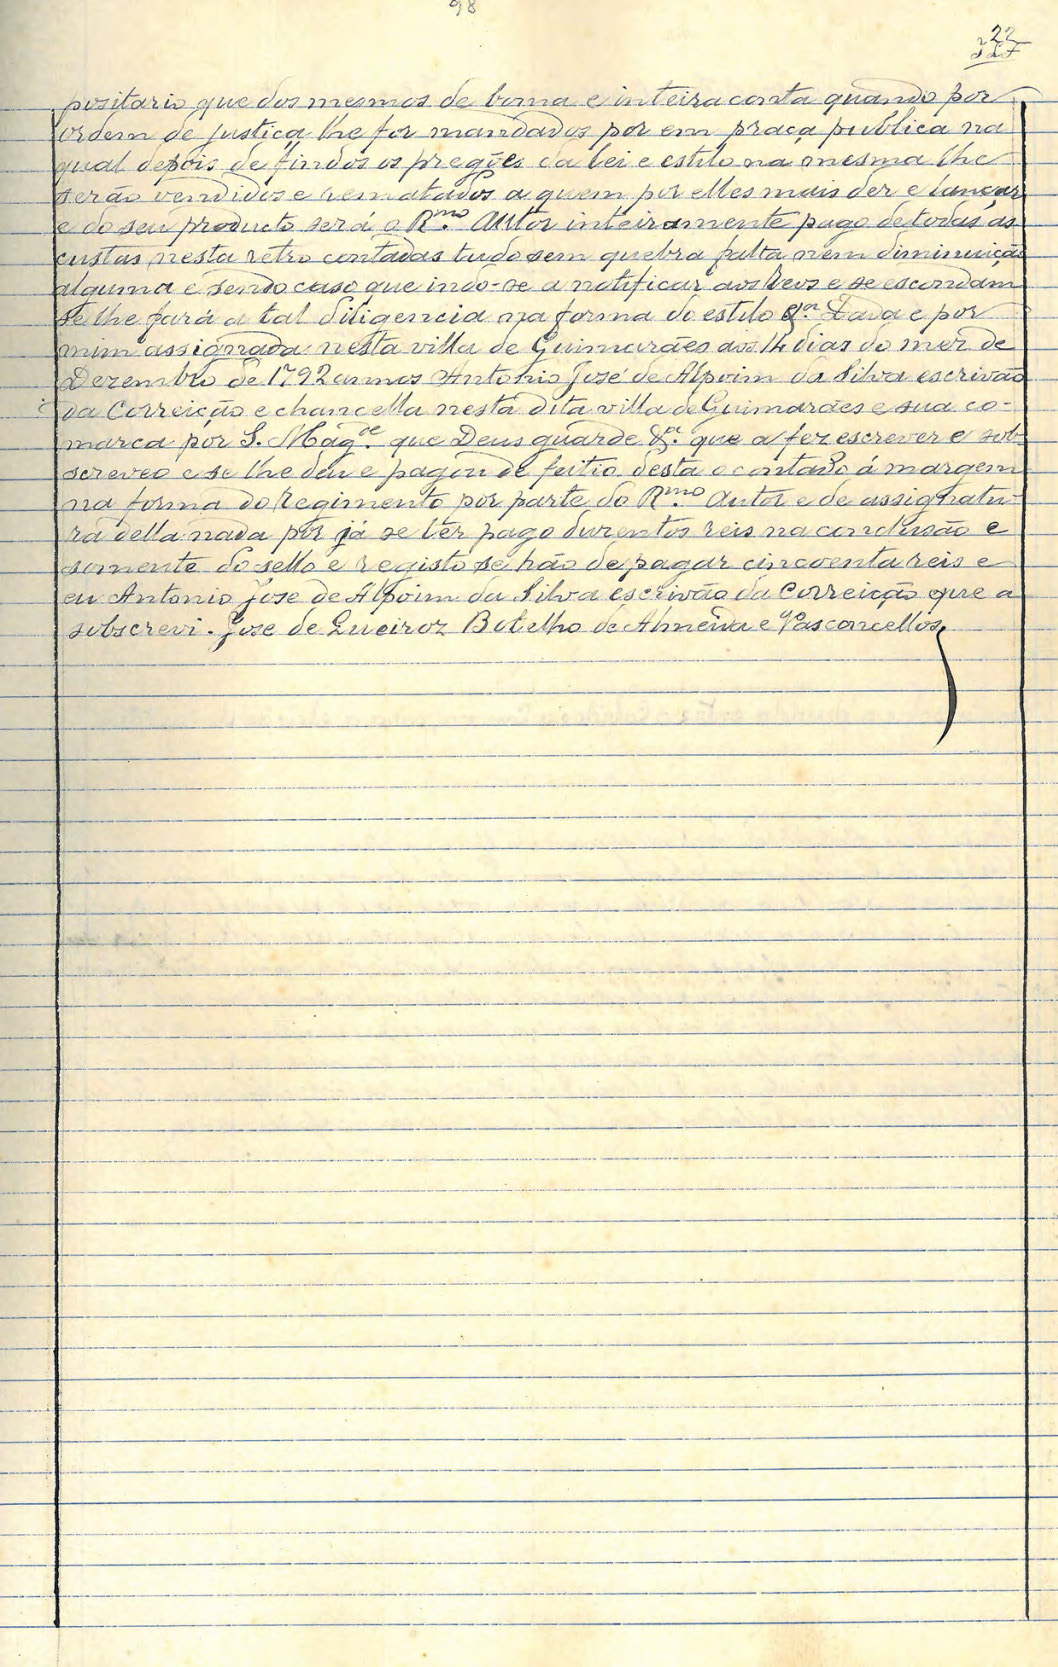 98
22
positario que dos mesmos de boma e inteira conta quando por
ordem de justiça lhe for mandados por em praça publica na
qual depois de findos os pregões da lei e estilo na mesma lhe
serão vendidos e rematados a quem por elles mais der e lançar
e do seu producto será o R.mo Autor inteiramente pago de todas as
custas nesta retro contadas tudo sem quebra falta nem diminuição
alguma e sendo caso que indo-se a notificar aos Reos e se escondam
se lhe fará a tal diligencia na forma do estilo &.a Dada e por
mim assignada nesta villa de Guimarães aos 14 dias do mez de
Dezembro de 1792 annos Antonio José de Alpoim da Silva escrivão
da Correição e chancella nesta dita villa de Guimarães e sua co-
marca por S. Mag.de que Deus guarde &.a que a fez escrever e sob-
screveo e se lhe deu e pagou de feitio desta o contado á margem
na forma do Regimento por parte do R.mo Autor e de assignatu-
ra della nada por já se ter pago duzentos reis na conclusão e
somente do sello e registo se hão de pagar cincoenta reis e
eu Antonio Jose de Alpoim da Silva escrivão da Correição que a
sobscrevi. Jose de Queiroz Botelho de Almeida e Vasconcellos